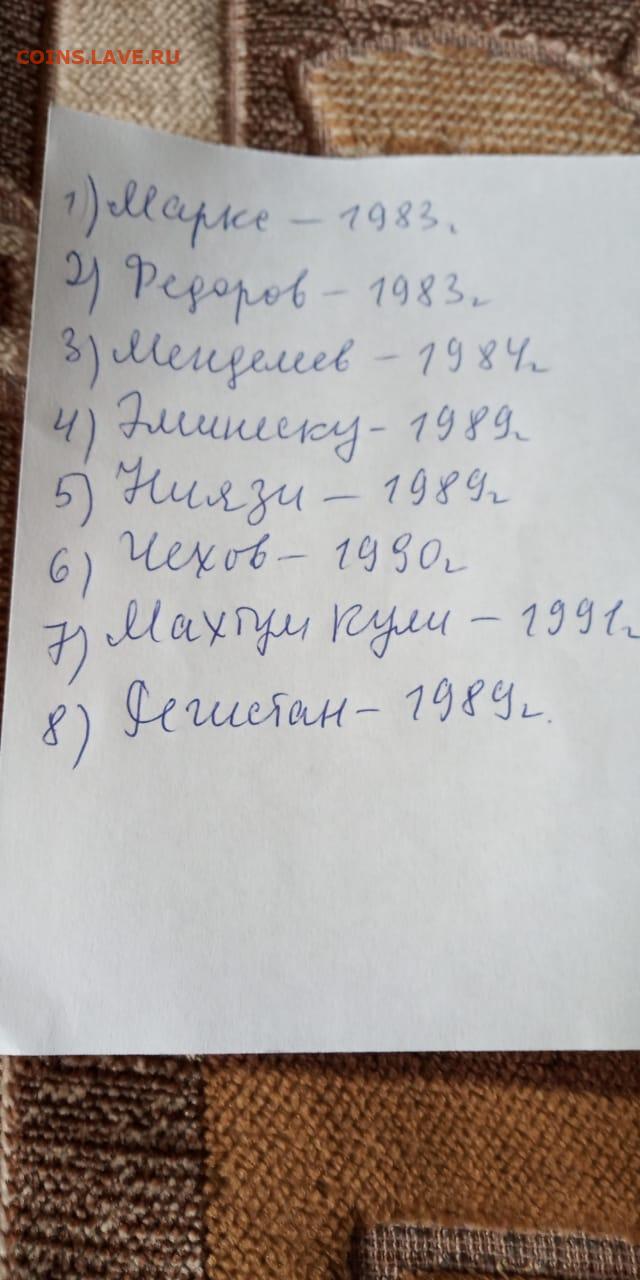 COINS.LAVE.RU
1) Маркс – 1983.
2) Федоров – 1983г
3) Менделеев – 1984г
4) Эминеску – 1989г
5) Ниязи – 1989г
6) Чехов – 1990г
7) Махтумкули – 1991г
8) Регистан – 1989г.